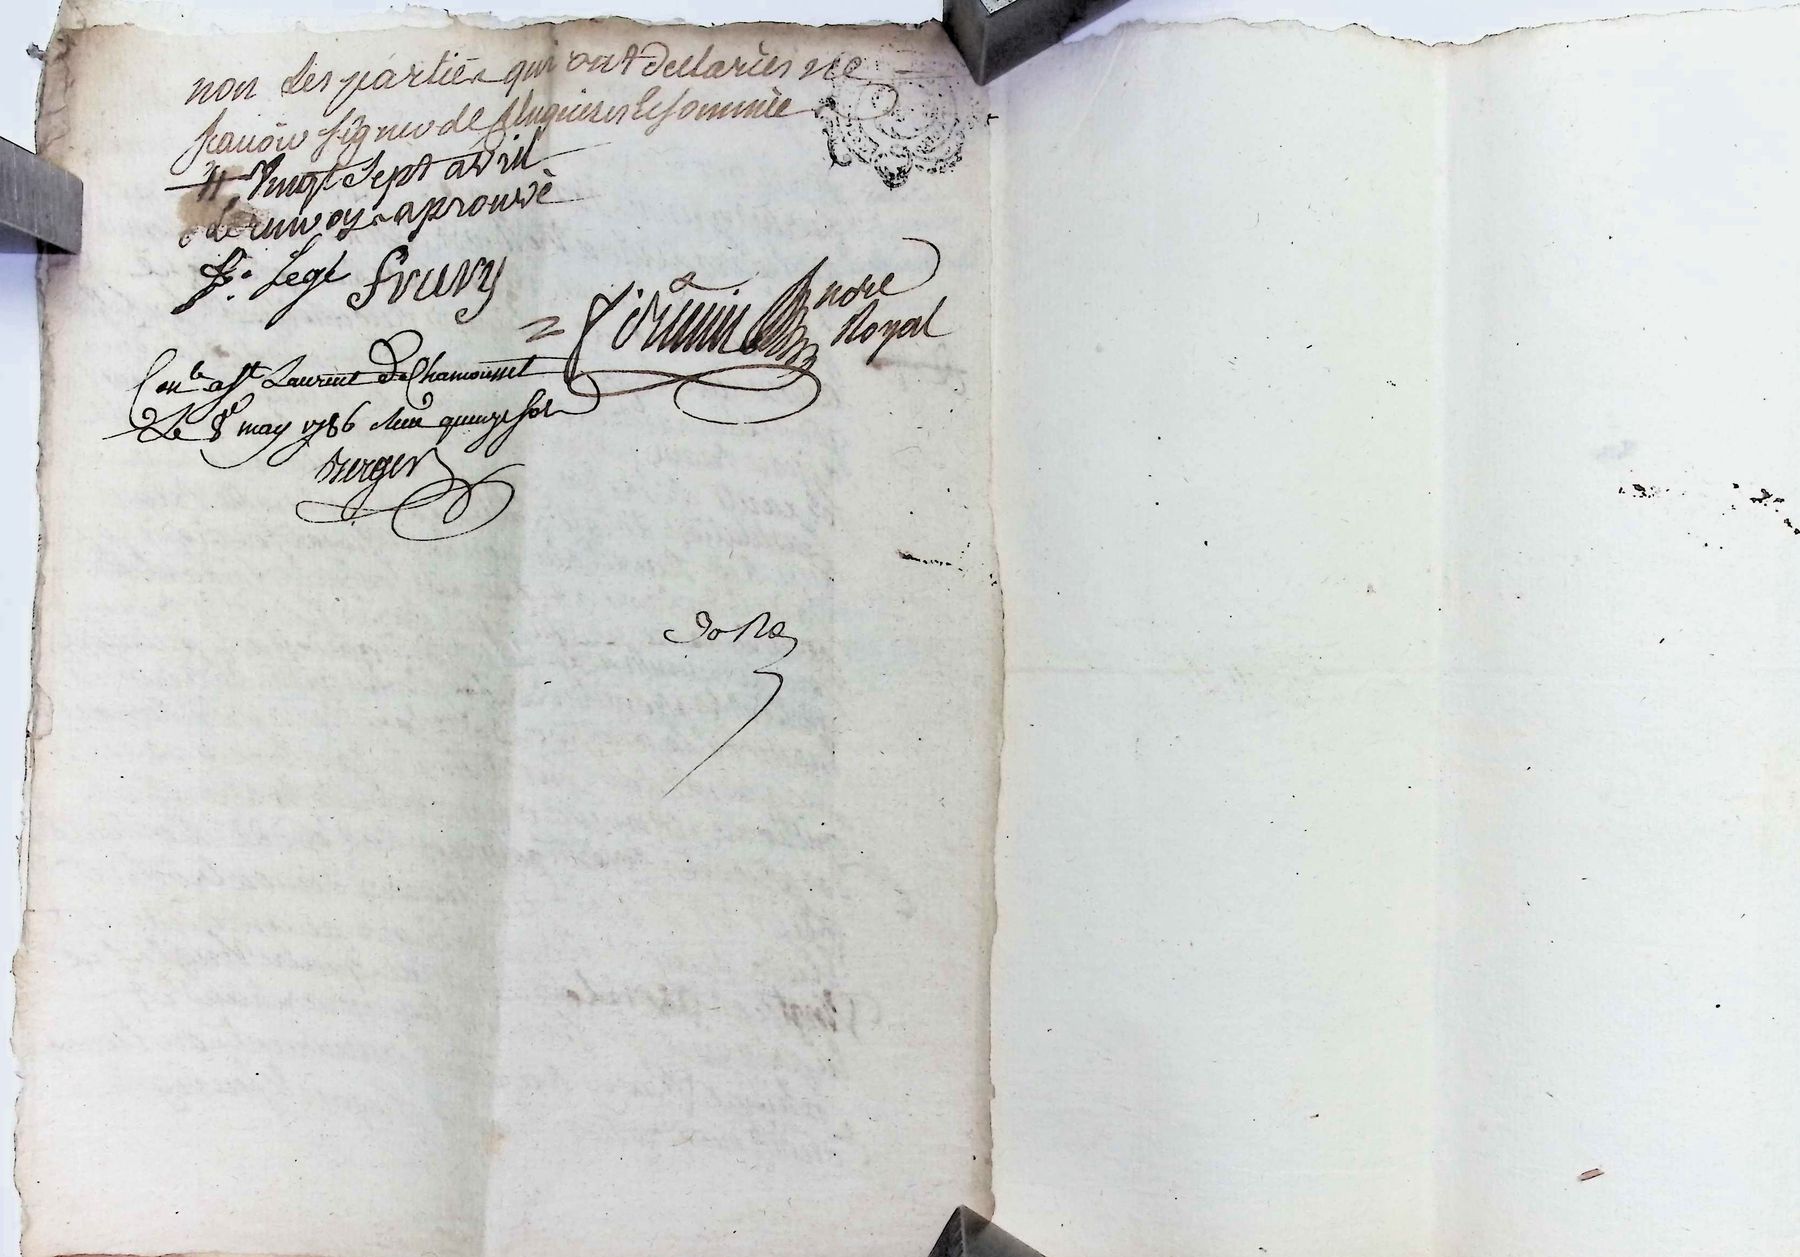 non les parties qui ont declarées ne
scavoir signer de ce enquieres et sommée
vingt sept avril
le renvoy aprouvé
Legt fruvy
Nore
Royal
Con.le a St Laurent De Chamousset
Le 8e may 1786 Reçu quinze sols
Berger